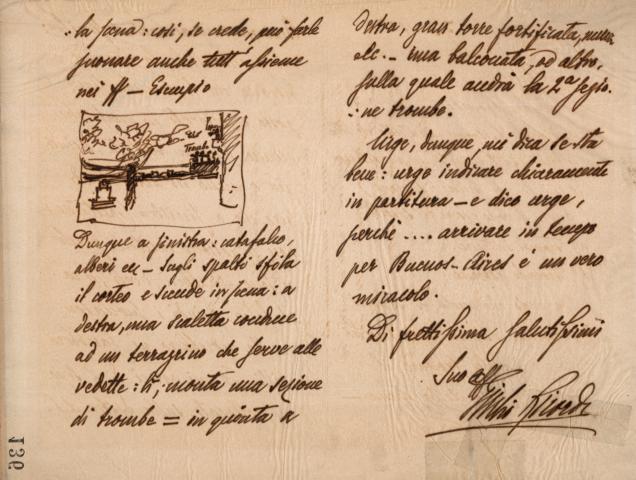 la scena: così, se crede, può farle
suonare anche tutt'assieme
nei ff – Esempio
Trombe
Dunque a sinistra: catafalco,
alberi ecc – Sugli spalti sfila
il corteo e scende in scena: a
destra, una scaletta conduce
ad un terrapieno che serve alle
vedette: lì, monta una sezione
di trombe = in quinta a
destra, gran torre fortificata, mura
etc. – una balconata, od altro,
sulla quale andrà la 2ª sezio-
:ne trombe.
Urge, dunque, mi dica se sta
bene: urge indicare chiaramente
in partitura – e dico urge,
perchè .... arrivare in tempo
per Buenos-Aires è un vero
miracolo.
Di frettissima salutissimi
Suo aff
Ricordi
139